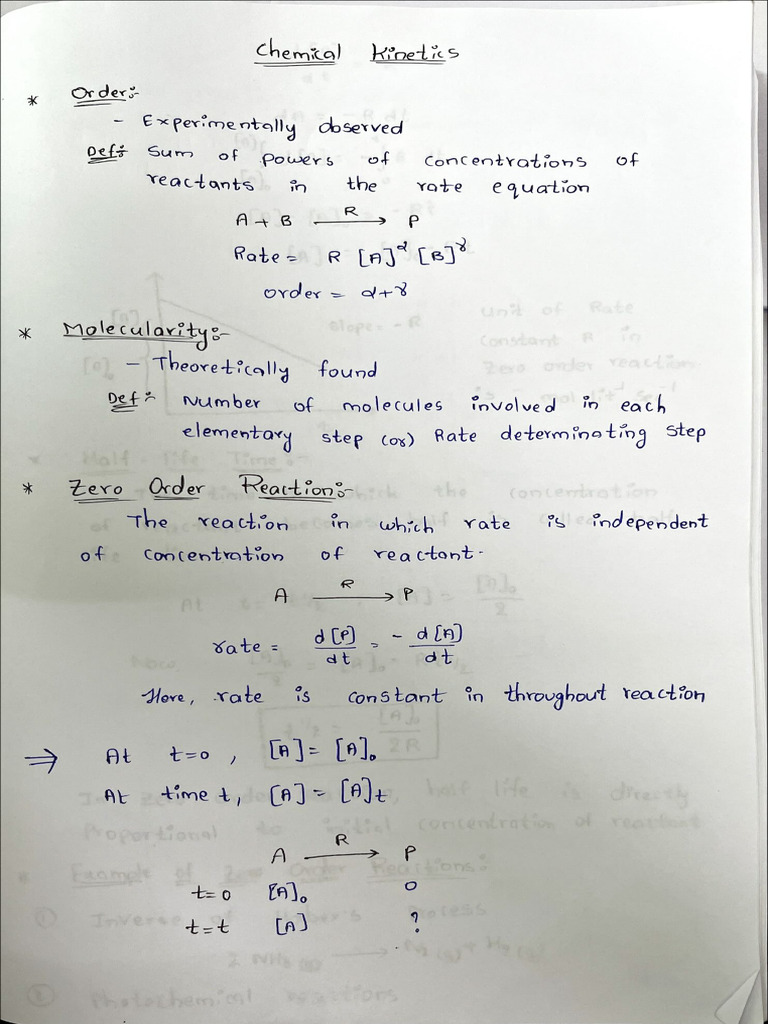 Chemical Kinetics
* Order:-
- Experimentally observed
Def:- Sum of powers of concentrations of
reactants in the rate equation
A + B —R→ P
Rate = R [A]^α [B]^γ
order = α+γ
* Molecularity:-
- Theoretically found
Def:- Number of molecules involved in each
elementary step (or) Rate determinating step
* Zero Order Reaction:-
The reaction in which rate is independent
of concentration of reactant.
A —R→ P
rate = d[P]/dt = - d[A]/dt
Here, rate is constant in throughout reaction
⇒ At t=0, [A] = [A]₀
At time t, [A] = [A]t
A —R→ P
t=0 [A]₀ 0
t=t [A] ?